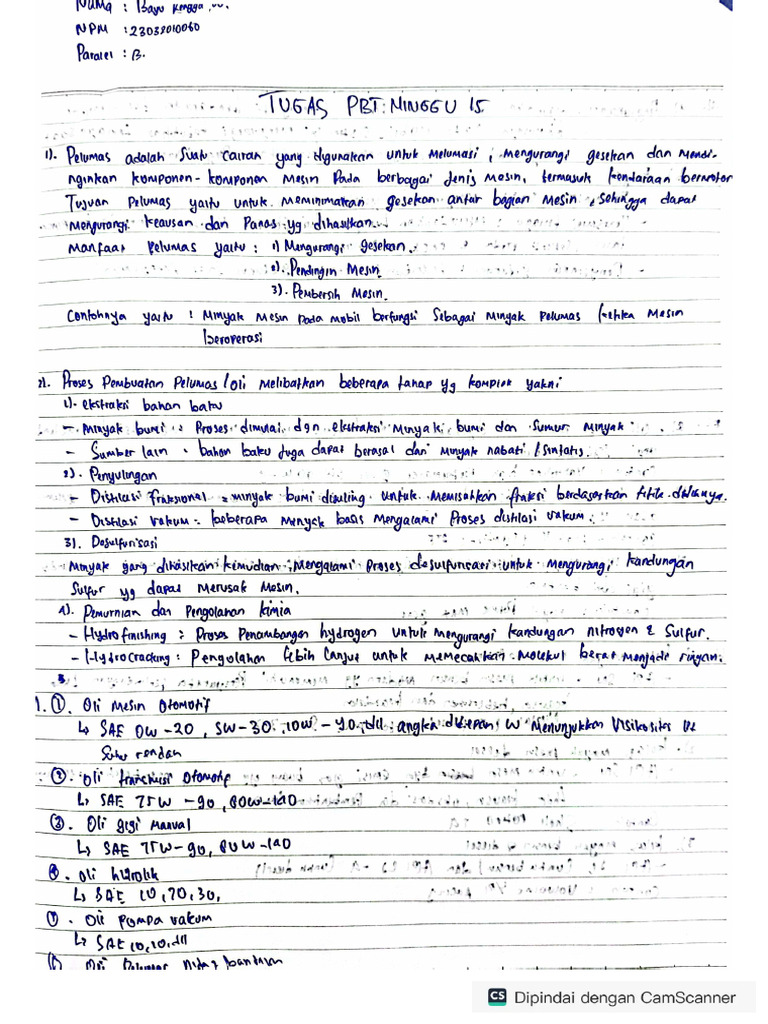 Nama : Bayu Rengga .W.
NPM : 23032010060
Paralel : B.
TUGAS PBT MINGGU 15
1). Pelumas adalah suatu cairan yang digunakan untuk melumasi, mengurangi gesekan dan mendi-
nginkan komponen-komponen mesin pada berbagai jenis mesin, termasuk kendaraan bermotor
Tujuan Pelumas yaitu untuk meminimalkan gesekan antar bagian mesin, sehingga dapat
mengurangi keausan dan panas yg dihasilkan.
Manfaat Pelumas yaitu : 1) Mengurangi gesekan.
2). Pendingin Mesin.
3). Pembersih Mesin.
Contohnya yaitu : Minyak mesin pada mobil berfungsi sebagai minyak pelumas ketika mesin
beroperasi
2). Proses Pembuatan Pelumas/oli melibatkan beberapa tahap yg komplek yakni
1). ekstraksi bahan baku
- Minyak bumi : Proses dimulai dgn ekstraksi minyak bumi dari sumur minyak
- Sumber lain : bahan baku juga dapat berasal dari minyak nabati / sintatis.
2). Penyulingan
- Distilasi fraksional = minyak bumi disuling untuk memisahkan fraksi berdasarkan titik didihnya.
- Distilasi vakum : beberapa minyak basis mengalami proses distilasi vakum.
3). Desulfurisasi
Minyak yang dihasilkan kemudian mengalami proses desulfurisasi untuk mengurangi kandungan
Sulfur yg dapat merusak mesin.
4). Pemurnian dan Pengolahan kimia
- Hydrofinishing : Proses Penambangan hydrogen untuk mengurangi kandungan nitrogen & Sulfur.
- Hydrocracking : Pengolahan lebih lanjut untuk memecahkan molekul berat menjadi ringan.
3.
1. ①. Oli Mesin Otomotif
↳ SAE 0W-20, 5W-30, 10W-40, dll angka didepan W menunjukkan Visikositas di
Suhu rendah
② Oli transmisi Otomotif
↳ SAE 75W-90, 80W-140
③. Oli gigi manual
↳ SAE 75W-90, 80W-140
④. Oli hidrolik
↳ SAE 10, 20, 30,
Oli Pompa vakum
↳ SAE 10, 10, dll
Oli Pelumas
CS Dipindai dengan CamScanner